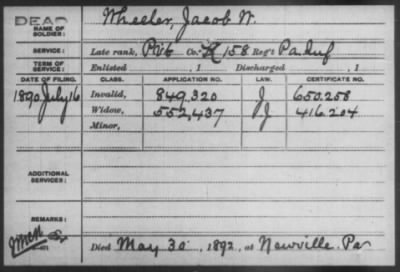 DEAD
NAME OF SOLDIER: Wheeler, Jacob W.
SERVICE: Late rank, Pvt Co. K 158 Reg't Pa. Inf
TERM OF SERVICE: Enlisted , 1 Discharged , 1
DATE OF FILING. CLASS. APPLICATION NO. LAW. CERTIFICATE NO.
1890 July 16 Invalid, 849,320 J 650.258
Widow, 552,437 J 416.204
Minor,
ADDITIONAL SERVICES:
REMARKS:
Died May 30, 1892, at Newville. Pa